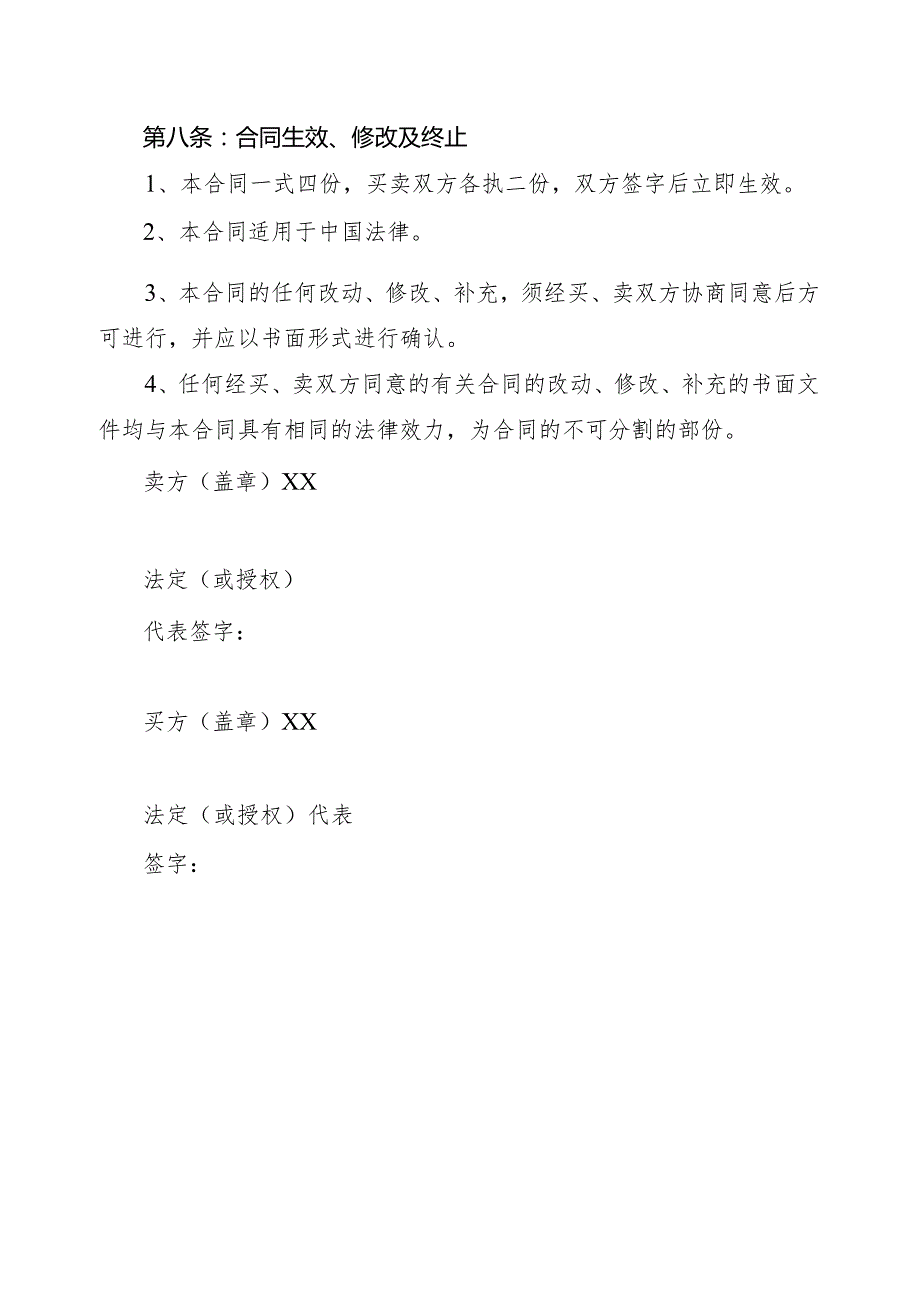 第八条：合同生效、修改及终止
1、本合同一式四份，买卖双方各执二份，双方签字后立即生效。
2、本合同适用于中国法律。
3、本合同的任何改动、修改、补充，须经买、卖双方协商同意后方
可进行，并应以书面形式进行确认。
4、任何经买、卖双方同意的有关合同的改动、修改、补充的书面文
件均与本合同具有相同的法律效力，为合同的不可分割的部份。
卖方（盖章）XX
法定（或授权）
代表签字：
买方（盖章）XX
法定（或授权）代表
签字：